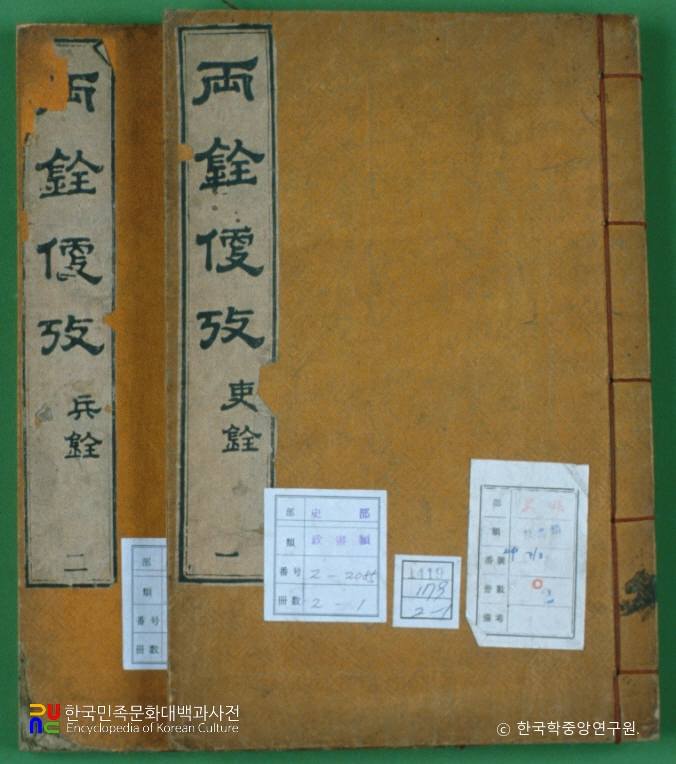 両銓便攷
吏銓
一
両銓便攷
兵銓
二
部 史部
類 政書類
番号 2-2085
冊數 2-1
179
2-1
部
類
番號
冊數
備考
部
類
番号
冊數
한국민족문화대백과사전
Encyclopedia of Korean Culture
ⓒ 한국학중앙연구원.